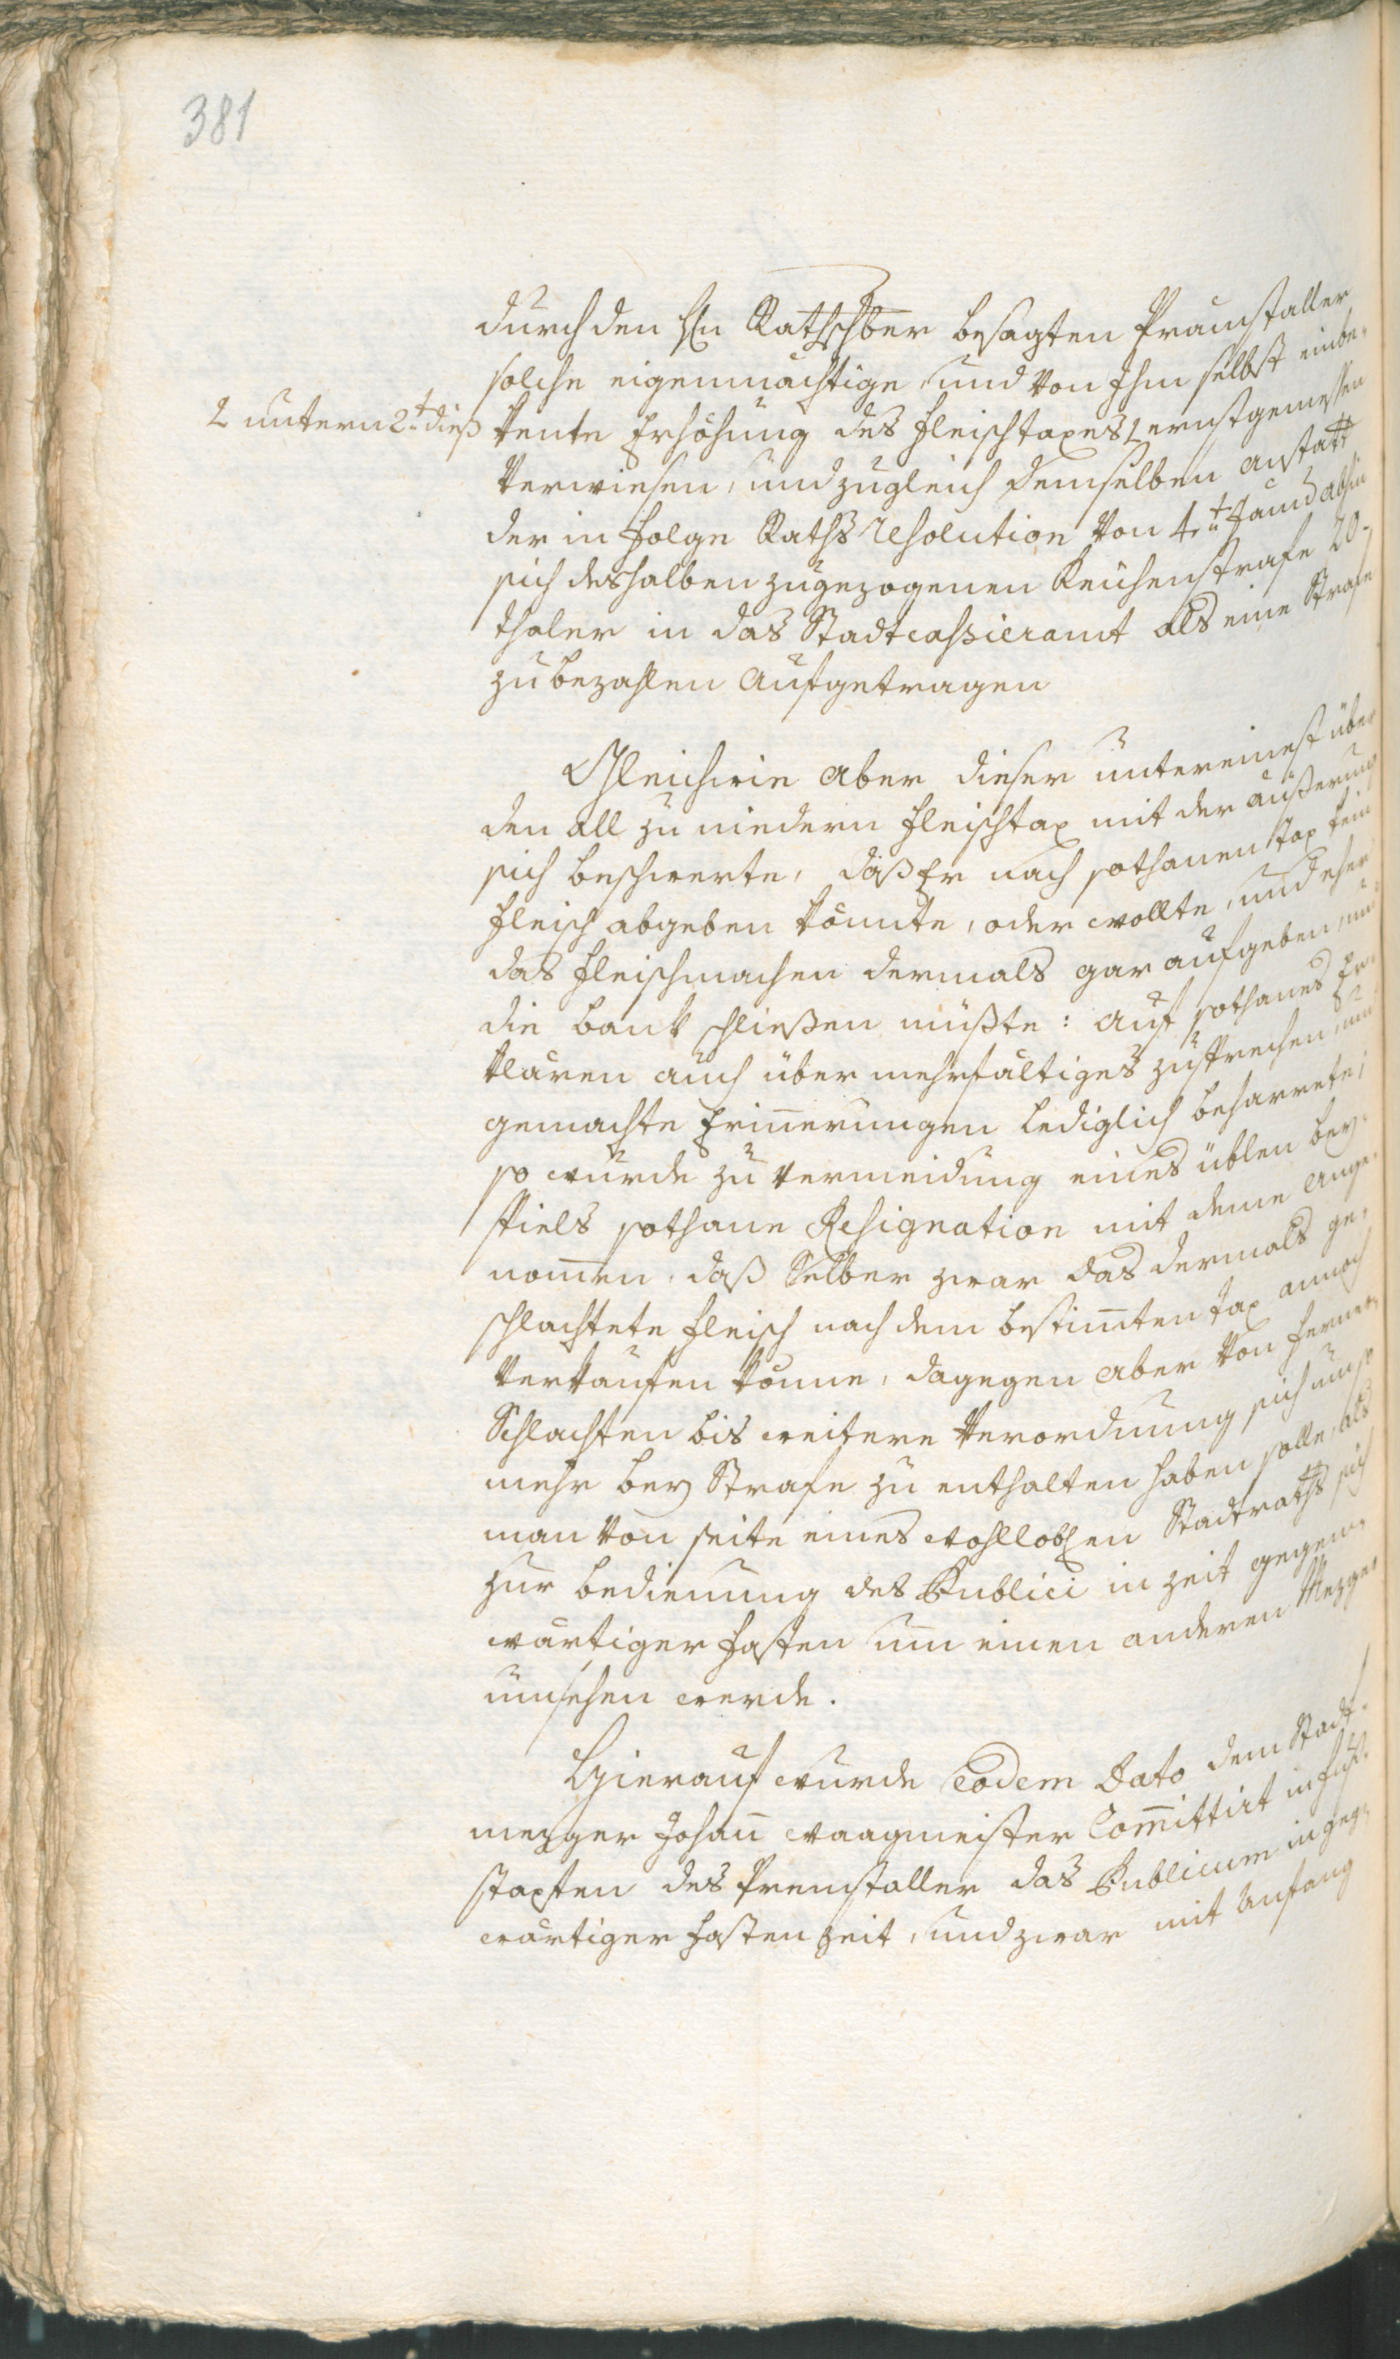 381
durch den H̄n Rathschber besagten Pramstaller
solche eigenmächtige, und von Ihm selbst einbe-
2 untern 2.t dieß
kente Erhöhung des Fleischtaxes 2 ernstgemessen
verwiesen, und zugleich demselben anstatt
der in Folge Raths resolution von 4.t
sich deshalben zugezogenen Keichenstrafe 20
thaler in das Stadtcassieramt als eine Strafe
zu bezahlen aufgetragen
Gleichwie aber dieser untereinest über
den all zu niedern Fleischtax mit der äußerung
sich beschwerte, daß Er nach sothanen Tax kein
Fleisch abgeben könnte, oder wollte, und eher
das Fleischmachen dermals gar aufgeben, und
die bank schließen müßte: auf sothanes Er-
klären auch über mehrfältiges zusprechen und
gemachte Erin̄erungen lediglich beharrete;
so wurde zu vermeidung eines üblen bey-
spiels sothane Resignation mit deme ange-
nom̄en, daß Selber zwar das dermals ge-
schlachtete Fleisch nach dem bestim̄ten Tax annoch
verkaufen könne, dagegen aber von ferner
Schlachten bis weitere Verordnung sich um so
mehr bey Strafe zu enthalten haben solle, als
man von seite eines wohlloblen Stadtraths sich
zur bedienung des Publici in zeit gegen-
wärtiger Fasten um einen anderen Mezger
umsehen werde.
Hierauf wurde Eodem Dato dem Stadt-
mezger Johan̄ Waagmeister Com̄ittirt in fuß-
stapfen des Premstaller das Publicum in geg-
wärtiger Fastenzeit, und zwar mit Anfang